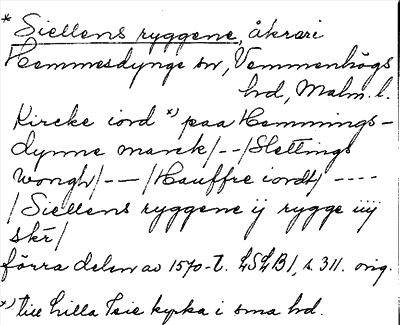 * Siellens ryggene, åkrar i
Hemmesdynge sn, Vemmenhögs
hd, Malm. l.
Kircke iord *) paa Hemmings-
dynne marck/--/Slettings
wongh/--/Hauffre iordt/----
/Siellens ryggene ij rygge iiij
skr/
förra delen av 1570-t. LSLB1, s. 311. orig.
*) till Lilla Isie kyrka i sma hd.